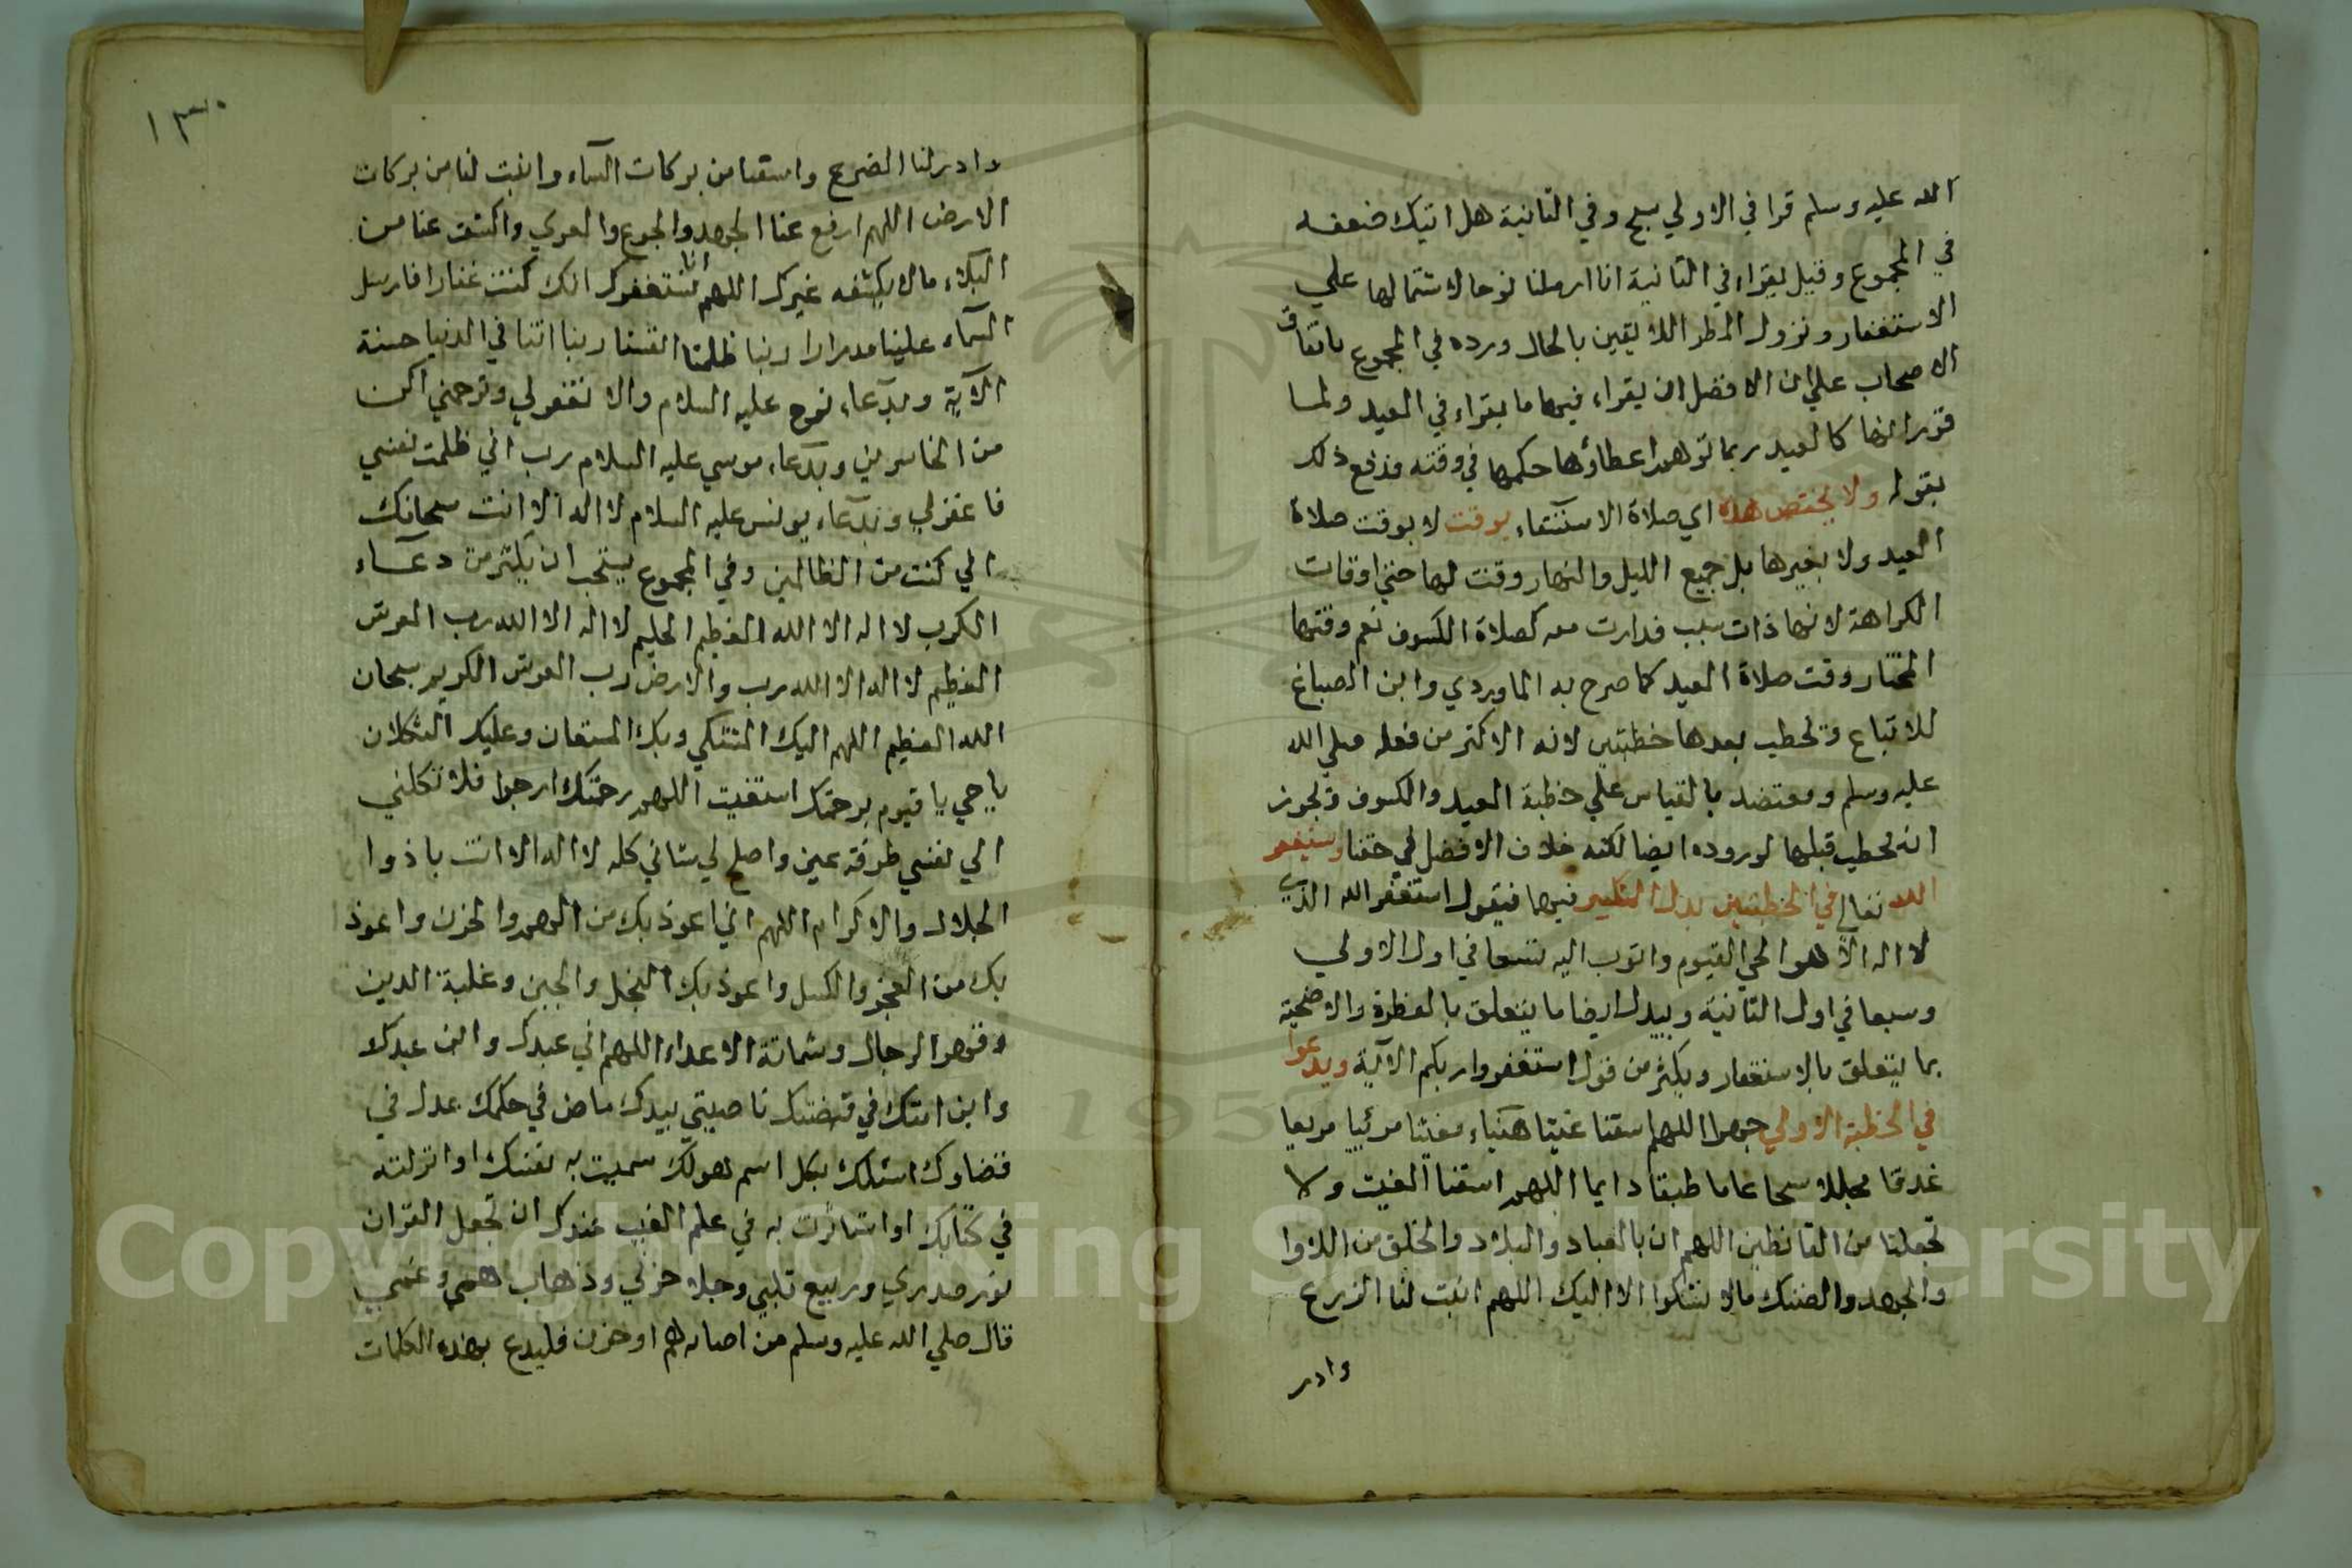 الله عليه وسلم قرا في الاولي سبح وفي الثانية هل اتيك ضعفه
في المجموع وقيل يقراء في الثانية انا ارسلنا نوحا لاشتمالها علي
الاستغفار ونزول المطر اللايقين بالحال ورده في المجموع باتفاق
الاصحاب علي ان الافضل ان يقراء فيهما ما يقراء في العيد ولما
قرر انها كالعيد ربما توهم اعطاؤها حكمها في وقته فدفع ذلك
بقوله ولا يختص هذه اي صلاة الاستسقاء بوقت لا بوقت صلاة
العيد ولا بغيرها بل جميع الليل والنهار وقت لها حتي اوقات
الكراهة لانها ذات سبب فدارت معه كصلاة الكسوف نعم وقتها
المختار وقت صلاة العيد كما صرح به الماوردي وابن الصباغ
للاتباع وتخطب بعدها خطبتين لانه الاكثر من فعله صلي الله
عليه وسلم ومعتضد بالقياس علي خطبة العيد والكسوف وتجوز
ان يخطب قبلها لوروده ايضا لكنه خلاف الافضل في حقنا وستغفر
الله تعالي في الخطبتين بدل التكبير فيهما فيقول استغفر الله الذي
لا اله الا هو الحي القيوم واتوب اليه تسعا في اول الاولي
وسبعا في اول الثانية ويبدل ايضا ما يتعلق بالفطرة والاضحية
بما يتعلق بالاستغفار ويكثر من قول استغفروا ربكم الآية ويدعوا
في الخطبة الاولي جهرا اللهم اسقنا غيثا هنياء مغيثا مرئيا مريعا
غدقا مجللا سحا عاما طبقا دايما اللهم اسقنا الغيث ولا
تجعلنا من القانطين اللهم ان بالعباد والبلاد والخلق من اللاوا
والجهد والضنك ما لا نشكوا الا اليك اللهم انبت لنا الزرع
وادر
١٣٠
وادر لنا الضرع واسقنا من بركات السماء وانبت لنا من بركات
الارض اللهم ارفع عنا الجهد والجوع والعري واكشف عنا من
البلاء ما لا يكشفه غيرك اللهم انا نستغفرك انك كنت غفارا فارسل
السماء علينا مدرارا ربنا ظلمنا انفسنا ربنا اتنا في الدنيا حسنة
الآية وبدعاء نوح عليه السلام والا تغفر لي وترحمني اكن
من الخاسرين وبدعاء موسي عليه السلام رب اني ظلمت نفسي
فاغفر لي وبدعاء يونس عليه السلام لا اله الا انت سبحانك
اني كنت من الظالمين وفي المجموع يستحب ان يكثر من دعاء
الكرب لا اله الا الله العظيم الحليم لا اله الا الله رب العرش
العظيم لا اله الا الله رب والارض رب العرش الكريم سبحان
الله العظيم اللهم اليك المشتكي وبك المستعان وعليك التكلان
يا حي يا قيوم برحمتك استغيث اللهم رحمتك ارجوا فلا تكلني
الي نفسي طرفة عين واصلح لي شاني كله لا اله الا انت يا ذوا
الجلال والاكرام اللهم اني اعوذ بك من الهم والحزن واعوذ
بك من العجز والكسل واعوذ بك البخل والجبن وغلبة الدين
وقهر الرجال وشماتة الاعداء اللهم اني عبدك وابن عبدك
وابن امتك في قبضتك ناصيتي بيدك ماض في حكمك عدل في
قضاوك اسئلك بكل اسم هو لك سميت به نفسك او انزلته
في كتابك او استاثرت به في علم الغيب عندك ان تجعل القران
نور صدري وربيع قلبي وجلاء حزني وذهاب همي وغمي
قال صلي الله عليه وسلم من اصابه هم او حزن فليدع بهذه الكلمات
Copyright © King Saud University
1957